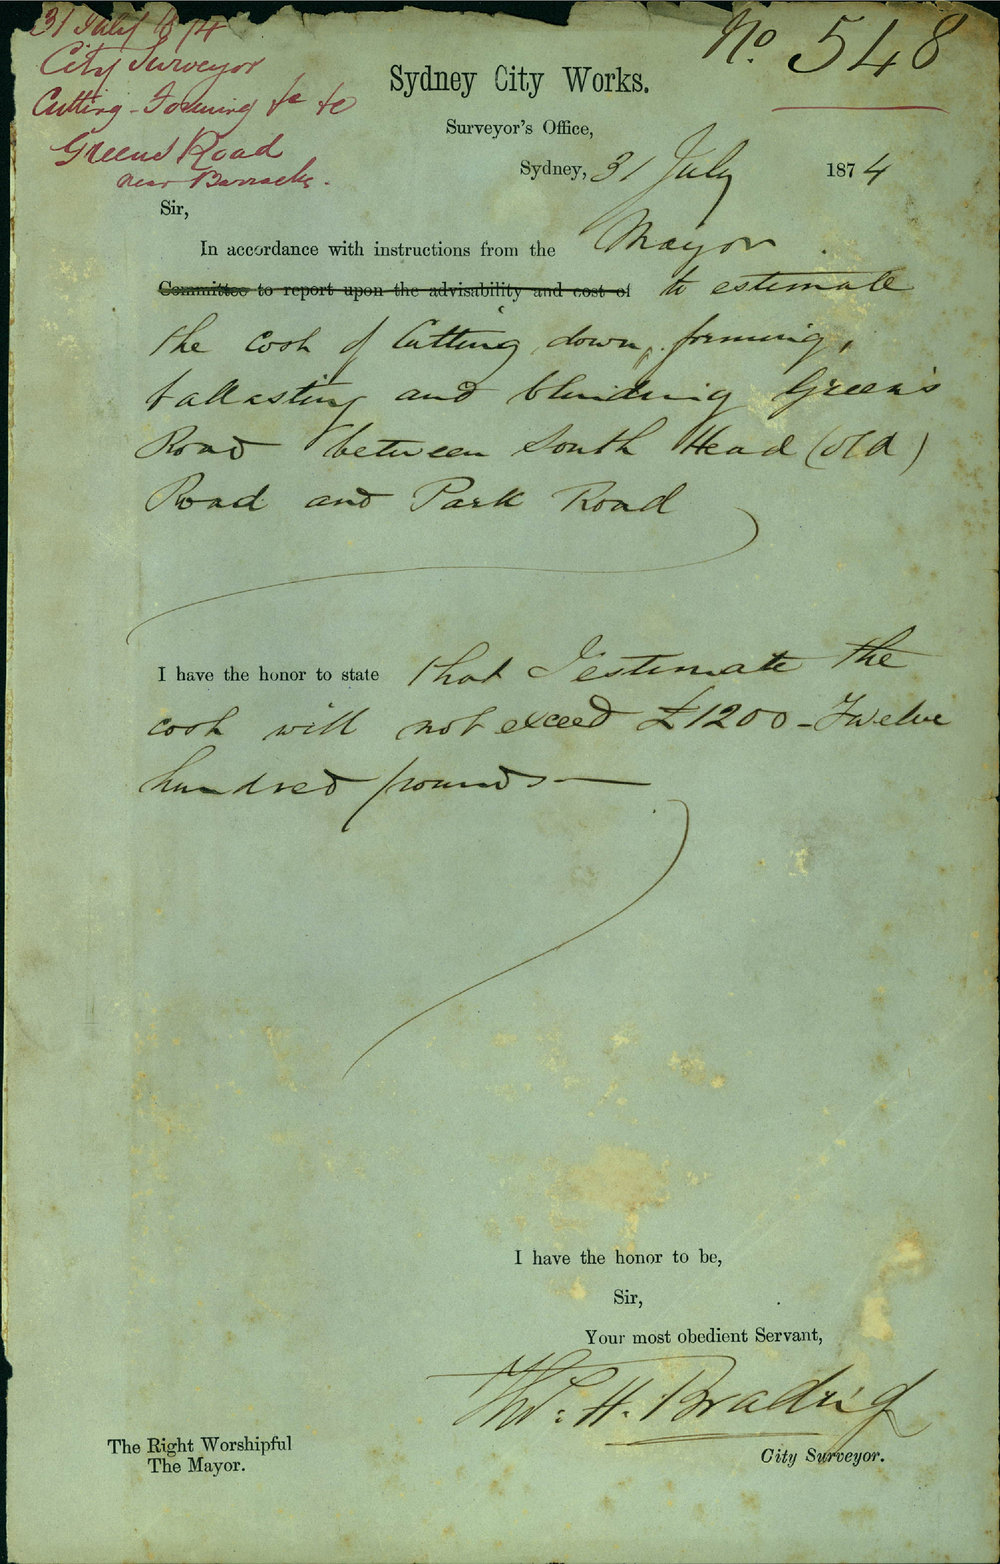 31 July 1874
City Surveyor
Cutting - Forming &c &c
Greens Road
near Barracks.
No. 548
Sydney City Works.
Surveyor's Office,
Sydney, 31 July 1874
Sir,
In accordance with instructions from the Mayor
Committee to report upon the advisability and cost of to estimate
the cost of Cutting down, forming,
ballasting and blinding Green's
Road between South Head (old)
Road and Park Road
I have the honor to state that I estimate the
cost will not exceed £1200 - Twelve
hundred pounds —
I have the honor to be,
Sir,
Your most obedient Servant,
Thos. H. Bradrig
City Surveyor.
The Right Worshipful
The Mayor.